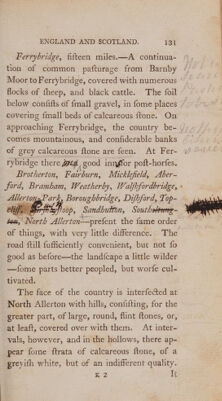 ENGLAND AND SCOTLAND. 131
Ferrybridge, fifteen miles.—A continua-
tion of common paſturage from Barnby
Moor to Ferrybridge, covered with numerous
flocks of ſheep, and black cattle. The ſoil
below conſiſts of ſmall gravel, in ſome places
covering ſmall beds of calcareous ſtone. On
approaching Ferrybridge, the country be-
comes mountainous, and conſiderable banks
of grey calcareous ſtone are ſeen. At Fer-
rybridge there good inn for poſt-horſes.
Brotherton, Fairburn, Micklefield, Aber-
ford, Bramham, Weatherby, Walſhfordbridge,
Allerton-Park, Boroughbridge, Diſhford, Top-
cliff, Sandhutton,
North Allerton—preſent the ſame order
of things, with very little difference. The
road ſtill ſufficiently convenient, but not ſo
good as before—the landſcape a little wilder
—ſome parts better peopled, but worſe cul-
tivated.
The face of the country is interſected at
North Allerton with hills, conſiſting, for the
greater part, of large, round, flint ſtones, or,
at leaſt, covered over with them. At inter-
vals, however, and in the hollows, there ap-
pear ſome ſtrata of calcareous ſtone, of a
greyiſh white, but of an indifferent quality.
K 2 It